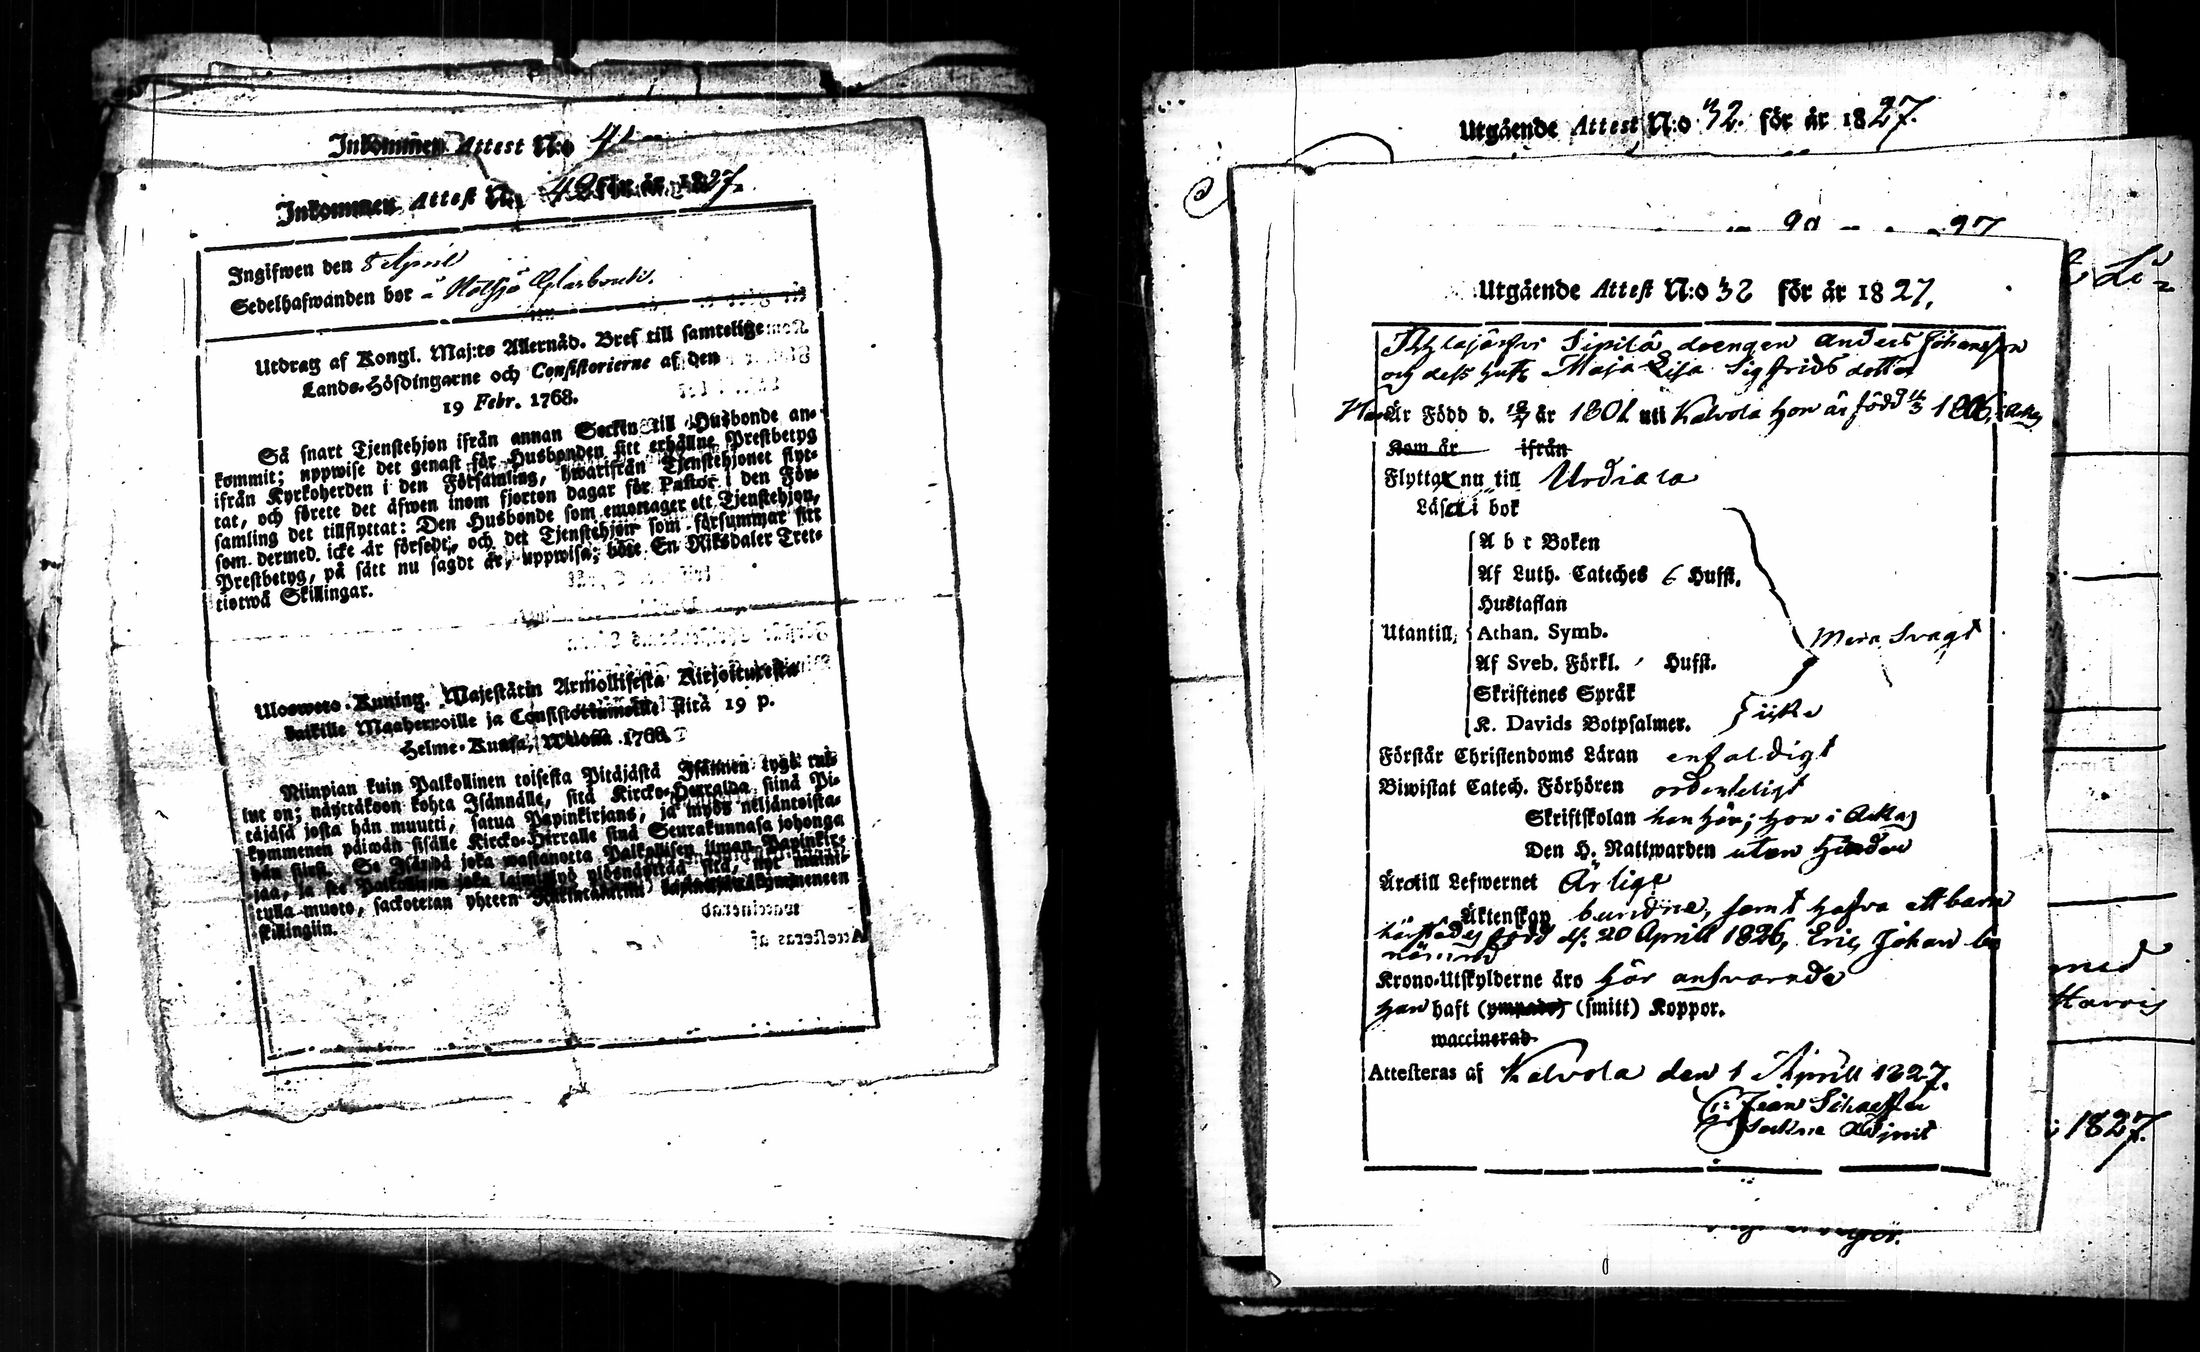 Inkommen Attest N:o 41
Inkommen Attest N:o 42 för år 1827.
Ingifwen den 8 April
Sedelhafwanden bor i
Utdrag af Kongl. Maj:ts Allernåd. Bref till samtelige
Lands-Höfdingarne och Consistorierne af den
19 Febr. 1768.
Så snart Tjenstehjon ifrån annan Socken till Husbonde an-
kommit; uppwise det genast för Husbonden sitt erhållne Prestbetyg
ifrån Kyrkoherden i den Församling, hwarifrån Tjenstehjonet flyt-
tat, och förete det äfwen inom fjorton dagar för Pastor i den För-
samling det tillflyttat: Den Husbonde som emottager ett Tjenstehjon,
som dermed icke är försedt, och det Tjenstehjon som försummar sitt
Prestbetyg, på sätt nu sagdt är, uppwisa; böte En Riksdaler Tret-
tiotwå Skillingar.
Ulosweto Kuning. Majestätin Armollisesta Kirjoituxesta
kaikille Maaherroille ja Consistoriumeille sitä 19 p.
Helme-Kuusa, Wuonna 1768.
Niinpian kuin Palkollinen toisesta Pitäjästä Isännän tygö tul-
lut on; näyttäköön kohta Isännälle, sitä Kircko-Herralda siinä Pi-
täjäsä josta hän muutti, saatua Papinkirjans, ja myös neljäntoista-
kymmenen päiwän sisälle Kircko-Herralle siinä Seurakunnasa johonga
hän siirsi. Se Isändä joka wastanotta Palkollisen ilman Papinkir-
jaa, ja se Palkollinen joka laiminlyö ylösnäyttää sitä, nyt mainit-
tulla muoto, sackotetan yhteen Riksintaleriin kahteenneljättäkymmeneen
skillingiin.
Utgående Attest N:o 32. för år 1827.
Utgående Attest N:o 32 för år 1827.
Sipilä drengen Anders Johansson
och dess hust. Maja Lisa Sigfrids dotter
Han Är Född d. år 1801 uti Kalvola hon är född 1806, i Akas
Kom år ifrån
Flyttar nu till Urdiala
Läsa i bok
A b c Boken
Af Luth. Cateches 6 Hufst.
Hustaflan
Utantill, Athan. Symb.
Mera Svagt
Af Sveb. Förkl. Hufst.
Skriftenes Språk
K. Davids Botpsalmer.
Förstår Christendoms Läran enfaldigt
Biwistat Catech. Förhören ordenteligt
Skriftskolan han här; hon i Ackas
Den H. Nattwarden utan hinder
Äro till Lefwernet Ärlige
Äktenskap bundne, samt hafva ett barn
härstädes född d. 20 Aprill 1826, Eric Johan be
nämnd
Krono-Utskylderne äro här answarade
Han haft (ympade) (smitt) Koppor.
waccinerad
Attesteras af Kalvola den 1 Aprill 1827.
Adjunct
1827.